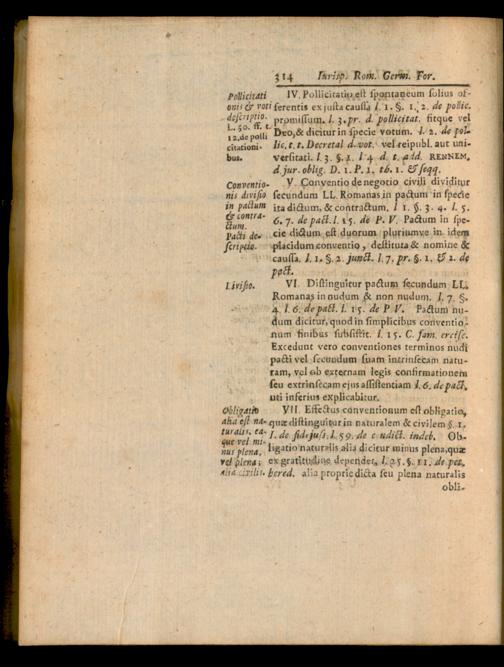 314 Iurisp. Rom. Germ. For.
Pollicitati
onis & voti
descriptio.
L. 50. ff. t.
12. de polli
citationi-
bus.
IV. Pollicitatio est spontaneum solius of-
ferentis ex justa caussa l. 1. §. 1. 2. de pollic.
promissum. l. 3. pr. d. pollicitat. fitque vel
Deo, & dicitur in specie votum. l. 2. de pol-
lic. t. t. Decretal d. vot. vel reipubl. aut uni-
versitati. l. 3. §. 1. l 4 d. t. add. RENNEM,
d. jur. oblig. D. 1. P. 1. th. 1. & seqq.
Conventio-
nis divisio
in pactum
& contra-
ctum.
Pacti de-
scriptio.
V. Conventio de negotio civili dividitur
secundum LL. Romanas in pactum in specie
ita dictum, & contractum. l 1 §. 3. 4. l. 5.
6. 7. de pact. l. 15. de P. V. Pactum in spe-
cie dictum est duorum pluriumve in idem
placidum conventio, destituta & nomine &
caussa. l. 1. §. 2. junct. l. 7, pr. §. 1. & 2. de
pact.
Livisio.
VI. Distinguitur pactum secundum LL.
Romanas in nudum & non nudum. l. 7. §.
4. l. 6. de pact. l. 15. de P V. Pactum nu-
dum dicitur, quod in simplicibus conventio
num finibus subsistit. l. 15. C. fam. ercisc.
Excedunt vero conventiones terminos nudi
pacti vel secundum suam intrinsecam natu-
ram, vel ob externam legis confirmationem
seu extrinsecam ejus assistentiam l. 6. de pact,
uti inferius explicabitur.
Obligatio
alia est na-
turalis, ea-
que vel mi-
nus plena,
vel plena;
alia civilis.
VII. Effectus conventionum est obligatio,
quæ distinguitur in naturalem & civilem §. 1.
I. de fidejuss. l. 59. de condict. indeb. Ob-
ligatio naturalis alia dicitur minus plena, quæ
ex gratitudine dependet, l. 25. §. 11. de pet.
hered. alia proprie dicta seu plena naturalis
obli-